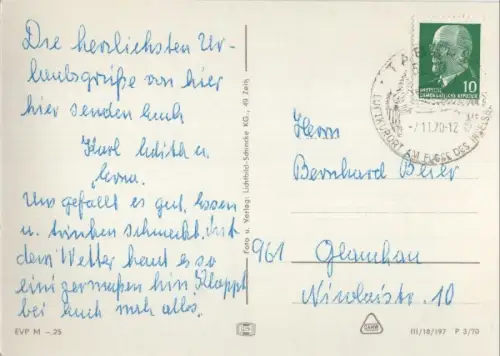 Die herzlichsten Ur-
laubsgrüße von hier
hier senden Euch
Karl Edith u.
Erna.
Uns gefällt es gut, Essen
u. trinken schmeckt. Mit
dem Wetter haut es so
einigermaßen hin, Klappt
bei Euch auch alles.
EVP M -.25
Foto u. Verlag: Lichtbild-Schincke KG., 49 Zeitz
10
DEUTSCHE
DEMOKRATISCHE REPUBLIK
LUFTKURORT AM FUSSE DES INSELSBERGES
-7.11.70-12
Herrn
Bernhard Beier
961 Glauchau
Nicolaistr. 10
III/18/197 P 3/70